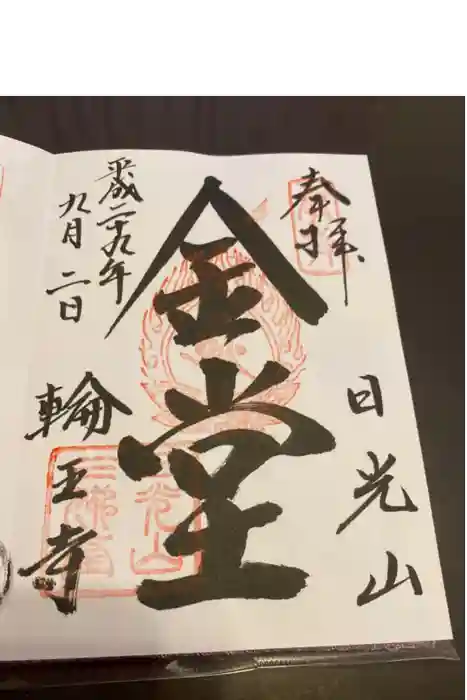 奉拝
日光山
金堂
平成二十九年
九月二日
輪王寺